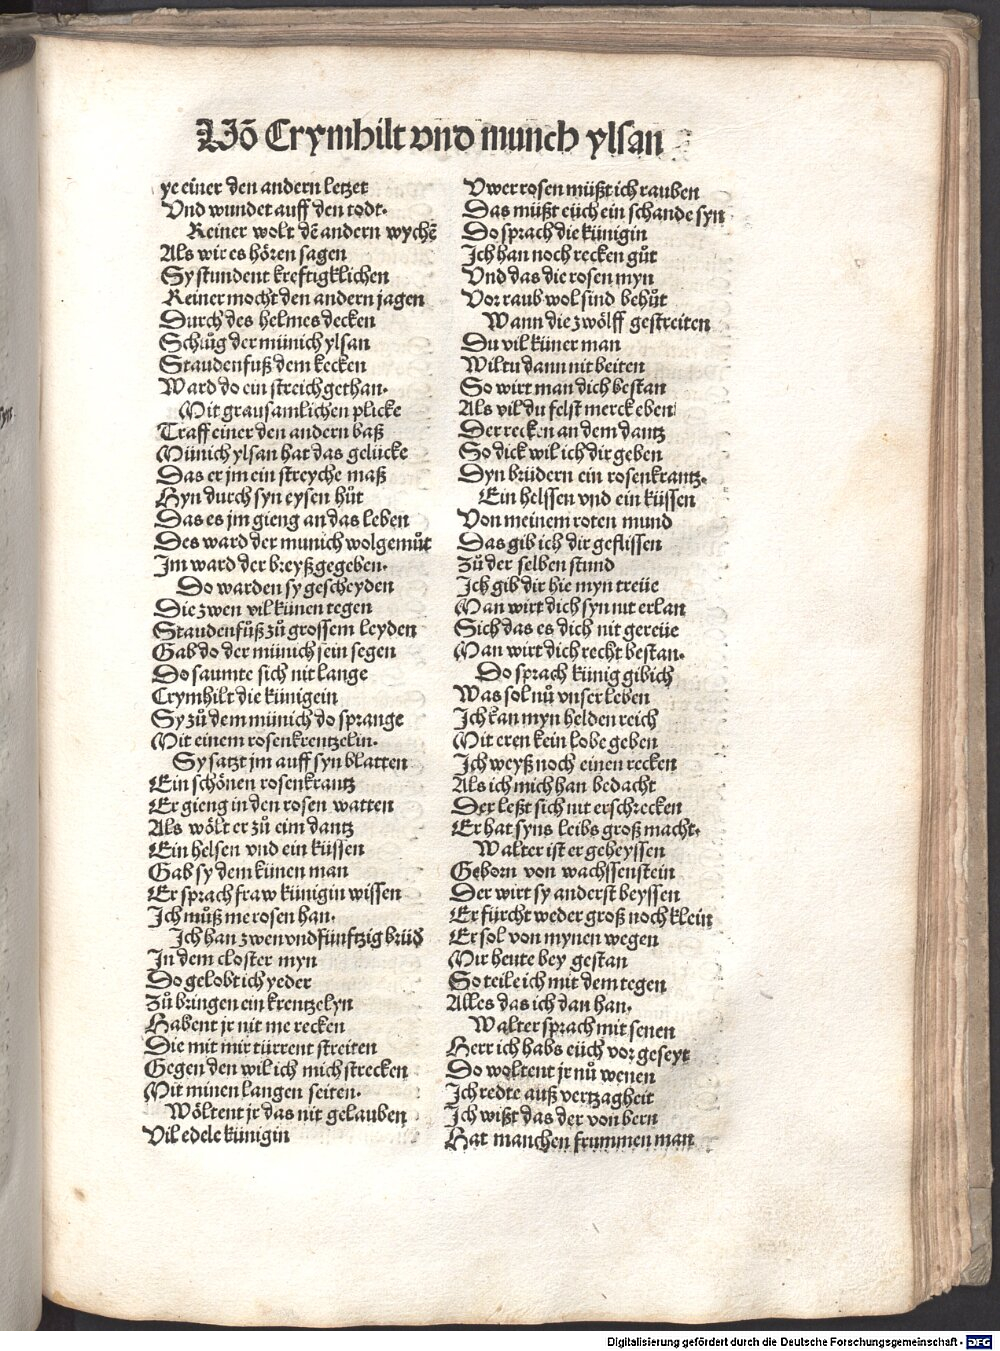 Vō Crymhilt vnd munch ylsan
ye einer den andern letzet
Vnd wundet auff den todt.
Keiner wolt dē andern wychē
Als wir es hören sagen
Sy stundent kreftigklichen
Keiner mocht den andern jagen
Durch des helmes decken
Schlůg der münich ylsan
Staudenfuß dem kecken
Ward do ein streich gethan.
Mit grausamlichen plicke
Traff einer den andern baß
Münich ylsan hat das gelücke
Das er jm ein streyche maß
Hyn durch syn eysen hůt
Das es jm gieng an das leben
Des ward der munich wolgemůt
Im ward der breyß gegeben.
Do warden sy gescheyden
Die zwen vil künen tegen
Staudenfůß zů grossem leyden
Gab do der münich sein segen
Do saumte sich nit lange
Crymhilt die künigein
Sy zů dem münich do sprange
Mit einem rosenkrentzelin.
Sy satzt jm auff syn blatten
Ein schönen rosenkrantz
Er gieng in den rosen watten
Als wölt er zů eim dantz
Ein helsen vnd ein küssen
Gab sy dem künen man
Er sprach fraw künigin wissen
Ich můß me rosen han.
Ich han zwen vnd fünftzig brüd
In dem closter myn
Do gelobt ich yeder
Zů bringen ein krentzelyn
Habent jr nit me recken
Die mit mir türrent streiten
Gegen den wil ich mich strecken
Mit minen langen seiten.
Wöltent jr das nit gelauben
Vil edele künigin
Vwer rosen müßt ich rauben
Das müßt eüch ein schande syn
Do sprach die künigin
Ich han noch recken gůt
Vnd das die rosen myn
Vor raub wol sind behůt
Wann die zwölff gestreiten
Du vil küner man
Wiltu dann nit beiten
So wirt man dich bestan
Als vil du felst merck eben
Der recken an dem dantz
So dick wil ich dir geben
Dyn brüdern ein rosenkrantz.
Ein helssen vnd ein küssen
Von meinem roten mund
Das gib ich dir geflissen
Zů der selben stund
Ich gib dir hie myn treüe
Man wirt dich syn nit erlan
Sich das es dich nit gereüe
Man wirt dich recht bestan.
Do sprach künig gibich
Was sol nů vnser leben
Ich kan myn helden reich
Mit eren kein lobe geben
Ich weyß noch einen recken
Als ich mich han bedacht
Der leßt sich nit erschrecken
Er hat syns leibs groß macht.
Walter ist er geheyssen
Geborn von wachssenstein
Der wirt sy anderst beyssen
Er fürcht weder groß noch klein
Er sol von mynen wegen
Mir heute bey gestan
So teile ich mit dem tegen
Alles das ich dan han.
Walter sprach mit senen
Herr ich habs eüch vor geseyt
Do woltent jr nů wenen
Ich redte auß vertzagheit
Ich wißt das der von bern
Hat manchen frummen man
Digitalisierung gefördert durch die Deutsche Forschungsgemeinschaft - DFG